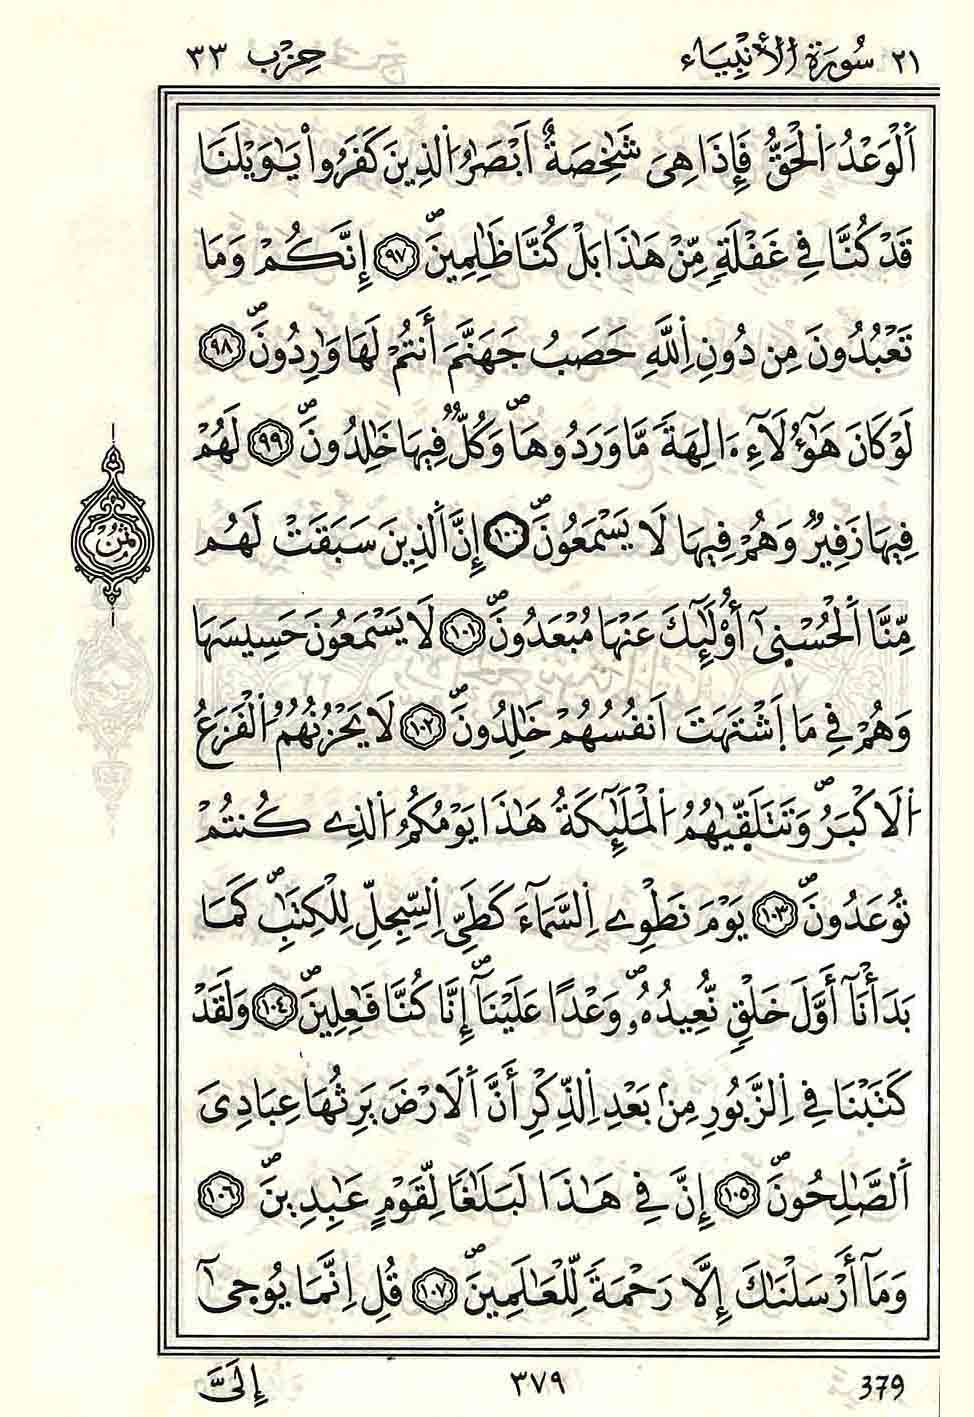 ٢١ سُورَةُ الْأَنْبِيَاء حِزْب ٣٣
اَ۬لْوَعْدُ اُ۬لْحَقُّ فَإِذَا هِيَ شَٰخِصَةٌ اَبْصَٰرُ اُ۬لذِينَ كَفَرُواْ يَٰوَيْلَنَا
قَدْ كُنَّا فِي غَفْلَةٖ مِّنْ هَٰذَا بَلْ كُنَّا ظَٰلِمِينَۖ ٩٧ إِنَّكُمْ وَمَا
تَعْبُدُونَ مِن دُونِ اِ۬للَّهِ حَصَبُ جَهَنَّمَ أَنتُمْ لَهَا وَٰرِدُونَۖ ٩٨
لَوْ كَانَ هَٰٓؤُلَآءِ اٰلِهَةٗ مَّا وَرَدُوهَاۖ وَكُلّٞ فِيهَا خَٰلِدُونَۖ ٩٩ لَهُمْ
فِيهَا زَفِيرٞ وَهُمْ فِيهَا لَا يَسْمَعُونَۖ ١٠٠ إِنَّ اَ۬لذِينَ سَبَقَتْ لَهُم
ثمن
مِّنَّا اَ۬لْحُسْن۪يٰٓ أُوْلَٰٓئِكَ عَنْهَا مُبْعَدُونَۖ ١٠١ لَا يَسْمَعُونَ حَسِيسَهَا
وَهُمْ فِي مَا اَ۪شْتَهَتَ اَنفُسُهُمْ خَٰلِدُونَۖ ١٠٢ لَا يَحْزُنُهُمُ اُ۬لْفَزَعُ
اُ۬لَاكْبَرُۖ وَتَتَلَقّ۪يٰهُمُ اُ۬لْمَلَٰٓئِكَةُ هَٰذَا يَوْمُكُمُ اُ۬لذِے كُنتُمْ
تُوعَدُونَۖ ١٠٣ يَوْمَ نَطْوِے اِ۬لسَّمَآءَ كَطَيِّ اِ۬لسِّجِلِّ لِلْكِتَٰبِۖ كَمَا
بَدَأْنَآ أَوَّلَ خَلْقٖ نُّعِيدُهُۥۖ وَعْداً عَلَيْنَآۖ إِنَّا كُنَّا فَٰعِلِينَۖ ١٠٤ وَلَقَدْ
كَتَبْنَا فِي اِ۬لزَّبُورِ مِنۢ بَعْدِ اِ۬لذِّكْرِ أَنَّ اَ۬لَارْضَ يَرِثُهَا عِبَادِيَ
اَ۬لصَّٰلِحُونَۖ ١٠٥ إِنَّ فِي هَٰذَا لَبَلَٰغاٗ لِّقَوْمٍ عَٰبِدِينَۖ ١٠٦
وَمَآ أَرْسَلْنَٰكَ إِلَّا رَحْمَةٗ لِّلْعَٰلَمِينَۖ ١٠٧ قُلِ اِنَّمَا يُوح۪يٰٓ
إِلَيَّ ٣٧٩ 379